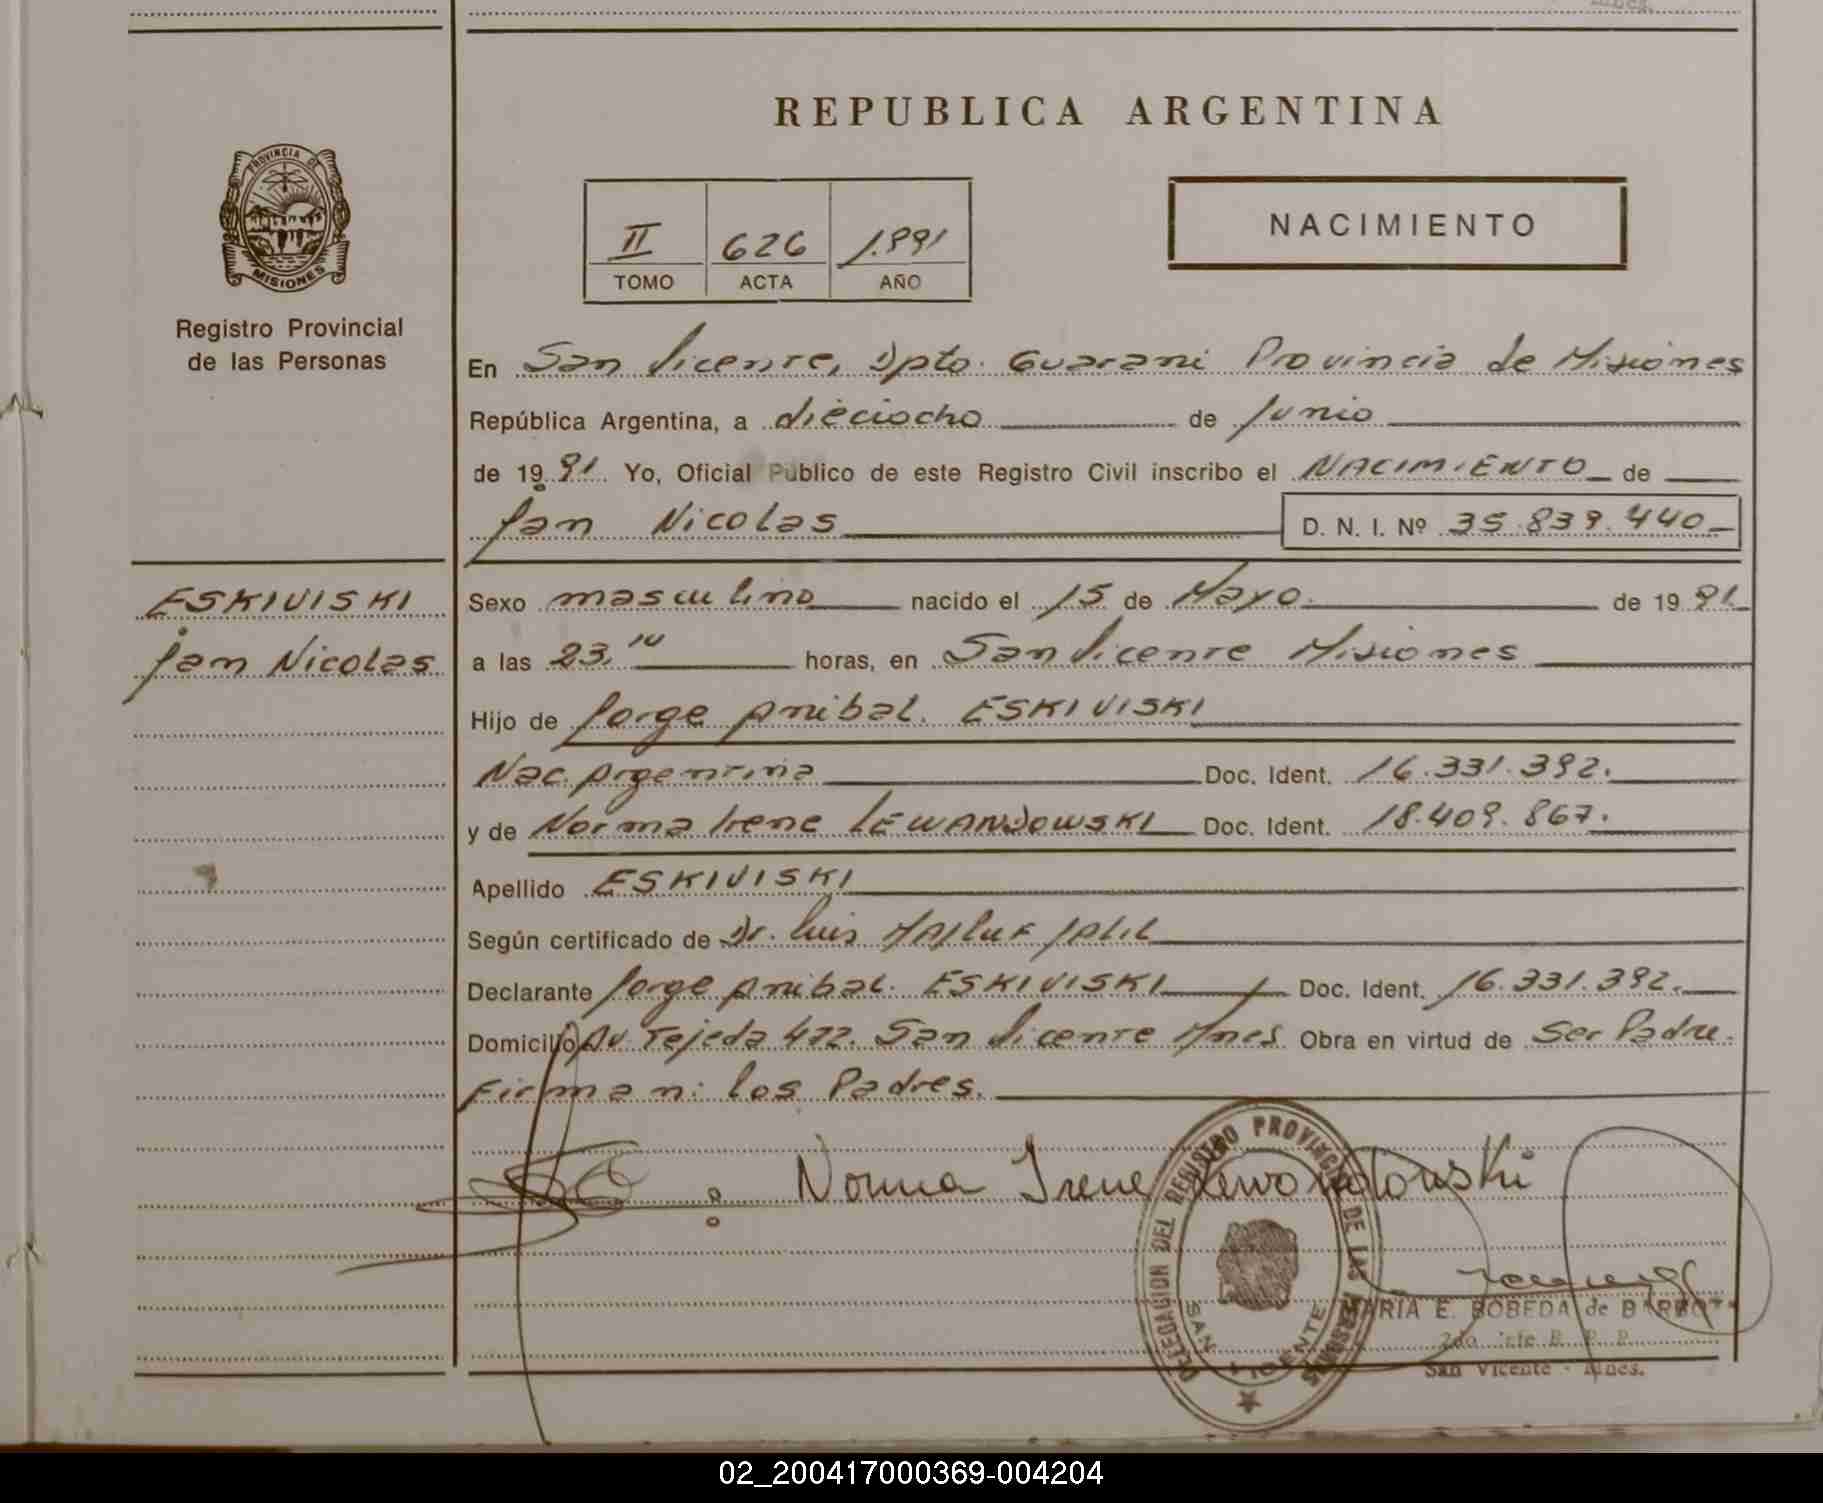 REPUBLICA ARGENTINA
PROVINCIA DE
MISIONES
Registro Provincial
de las Personas
II 626 1.991
TOMO ACTA AÑO
NACIMIENTO
En San Vicente, Dpto. Guarani Provincia de Misiones
República Argentina, a dieciocho de Junio
de 19 91. Yo, Oficial Público de este Registro Civil inscribo el NACIMIENTO de
Jan Nicolas D. N. I. Nº 35.839.440
ESKIVISKI
Jan Nicolas
Sexo masculino nacido el 15 de Mayo. de 19 91.
a las 23,10 horas, en San Vicente Misiones
Hijo de Jorge Anibal. ESKIVISKI
Nac. Argentina Doc. Ident. 16.331.392.
y de Norma Irene LEWANDOWSKI Doc. Ident. 18.409.867.
Apellido ESKIVISKI
Según certificado de Dr. Luis JALIL
Declarante Jorge Anibal. ESKIVISKI Doc. Ident. 16.331.392.
Domicilio Av. Tejeda 472. San Vicente Mnes Obra en virtud de Ser Padre.
Firman: los Padres.
Norma Irene Lewandowski
DELEGACION DEL REGISTRO PROVINCIAL DE LAS PERSONAS
SAN VICENTE
MARIA E. BOBEDA de
2do. Jefe R. P. P.
San Vicente - Mnes.
02_200417000369-004204